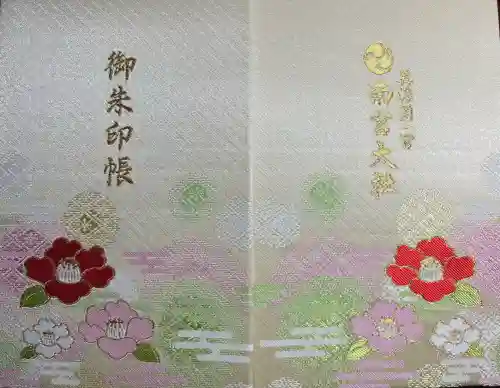 美濃国一宮
南宮大社
御朱印帳